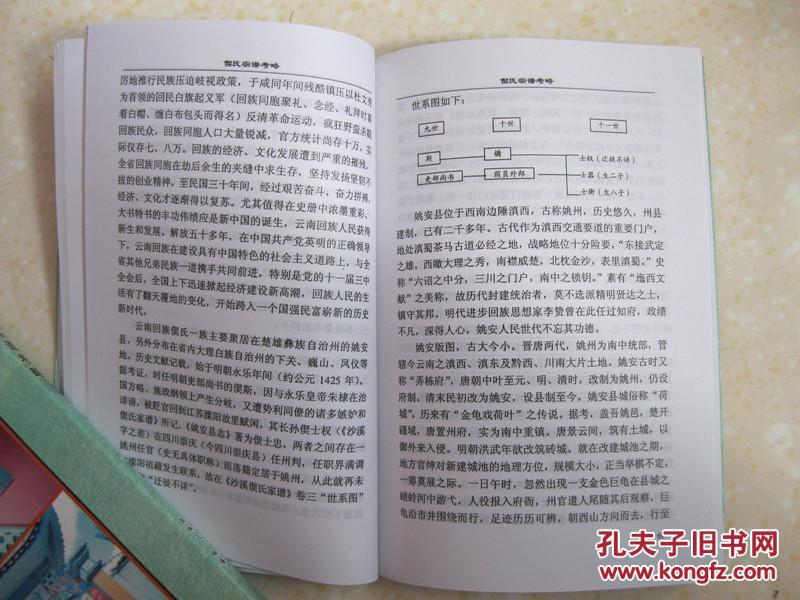 偰氏宗谱考略
历地推行民族压迫歧视政策，于咸同年间残酷镇压以杜文秀
为首领的回民白旗起义军（回族同胞聚礼、念经、礼拜时喜
着白帽、缠白布包头而得名）反清革命运动，疯狂野蛮杀戮
回族民众，回族同胞人口大量锐减，官方统计尚存十万，实
际仅存七、八万。回族的经济、文化发展遭到严重的摧残，
全省回族同胞在劫后余生的夹缝中求生存，坚持发扬坚韧不
拔的创业精神，至民国三十年间，经过艰苦奋斗，奋力拼搏，
经济、文化才逐渐得以复苏。尤其值得在史册中浓墨重彩、
大书特书的丰功伟绩应是新中国的诞生，云南回族人民获得
新生和发展。解放五十多年，在中国共产党英明的正确领导
下，云南回族在建设具有中国特色的社会主义道路上，与全
省其他兄弟民族一道携手共同前进，特别是党的十一届三中
全会后，全国上下迅速掀起经济建设新高潮，回族人民的生
活有了翻天覆地的变化，开始跨入一个国强民富崭新的历史
新时代。
云南回族偰氏一族主要聚居在楚雄彝族自治州的姚安
县，另外分布在省内大理白族自治州的下关、巍山、凤仪等
地。历史文献记载，始于明朝永乐年间（约公元 1425 年）。
据考证，时任明朝吏部尚书的偰斯，因与永乐皇帝朱棣在治
国方略、施政纲领上产生分岐，又遭势利同僚的诸多嫉妒和
诽谤，被贬官回到江苏溧阳故里赋闲，其长孙偰士权（《沙溪
偰氏家谱》所记，《姚安县志》著为偰士忠，两者之间存在一
字之差）在四川崇庆（今四川崇庆县）任州判，任职界满调
姚州任官（史无具体职称）而落籍定居于姚州，从此就再未
溧阳祖籍发生联系，故在《沙溪偰氏家谱》卷三“世系图”
“迁徙不详”。
偰氏宗谱考略
世系图如下：
九世 十世 十一世
斯 傋 士权（迁徙不详）
吏部尚书 前员外郎 士器（生二子）
士衡（生八子）
姚安县位于西南边陲滇西，古称姚州，历史悠久，州县
建制，已有二千多年。古代作为滇西交通要道的重要门户，
地处滇蜀茶马古道必经之地，战略地位十分险要，“东接武定
之雄，西瞰大理之秀，南襟威楚，北枕金沙，表里滇蜀。”史
称“六诏之中分，三川之门户，南中之锁钥。”素有“迤西文
献”之美称，故历代封建统治者，莫不选派精明贤达之士，
镇守其邦。明代进步回族思想家李贽曾在此任过知府，政绩
不凡，深得人心，姚安人民世代不忘其功德。
姚安版图，古大今小。晋唐两代，姚州为南中统部，管
辖今云南之滇西、滇东及黔西、川南大片土地。姚安古时又
称“弄栋府”，唐朝中叶至元、明、清时，改制为姚州，仍设
府制。清末民初改为姚安，设县制至今。姚安县城俗称“荷
城”，历来有“金龟戏荷叶”之传说。据考，盖吾姚邑，楚开
疆域，唐置州府，实为南中重镇。唐景云间，筑有土城，以
御外来入侵。明朝洪武年欲改筑砖城，就在改建城池之期，
地方官绅对新建城池的地理方位，规模大小，正当举棋不定，
一筹莫展之际。一日午时，忽然出现一支金色巨龟在县城之
蜻蛉河中游弋，人役报入府衙，州官遣人尾随其后观察，巨
龟沿市井围绕而行，足迹历历可辨，朝西山方向而去，行至
孔夫子旧书网
www.kongfz.com